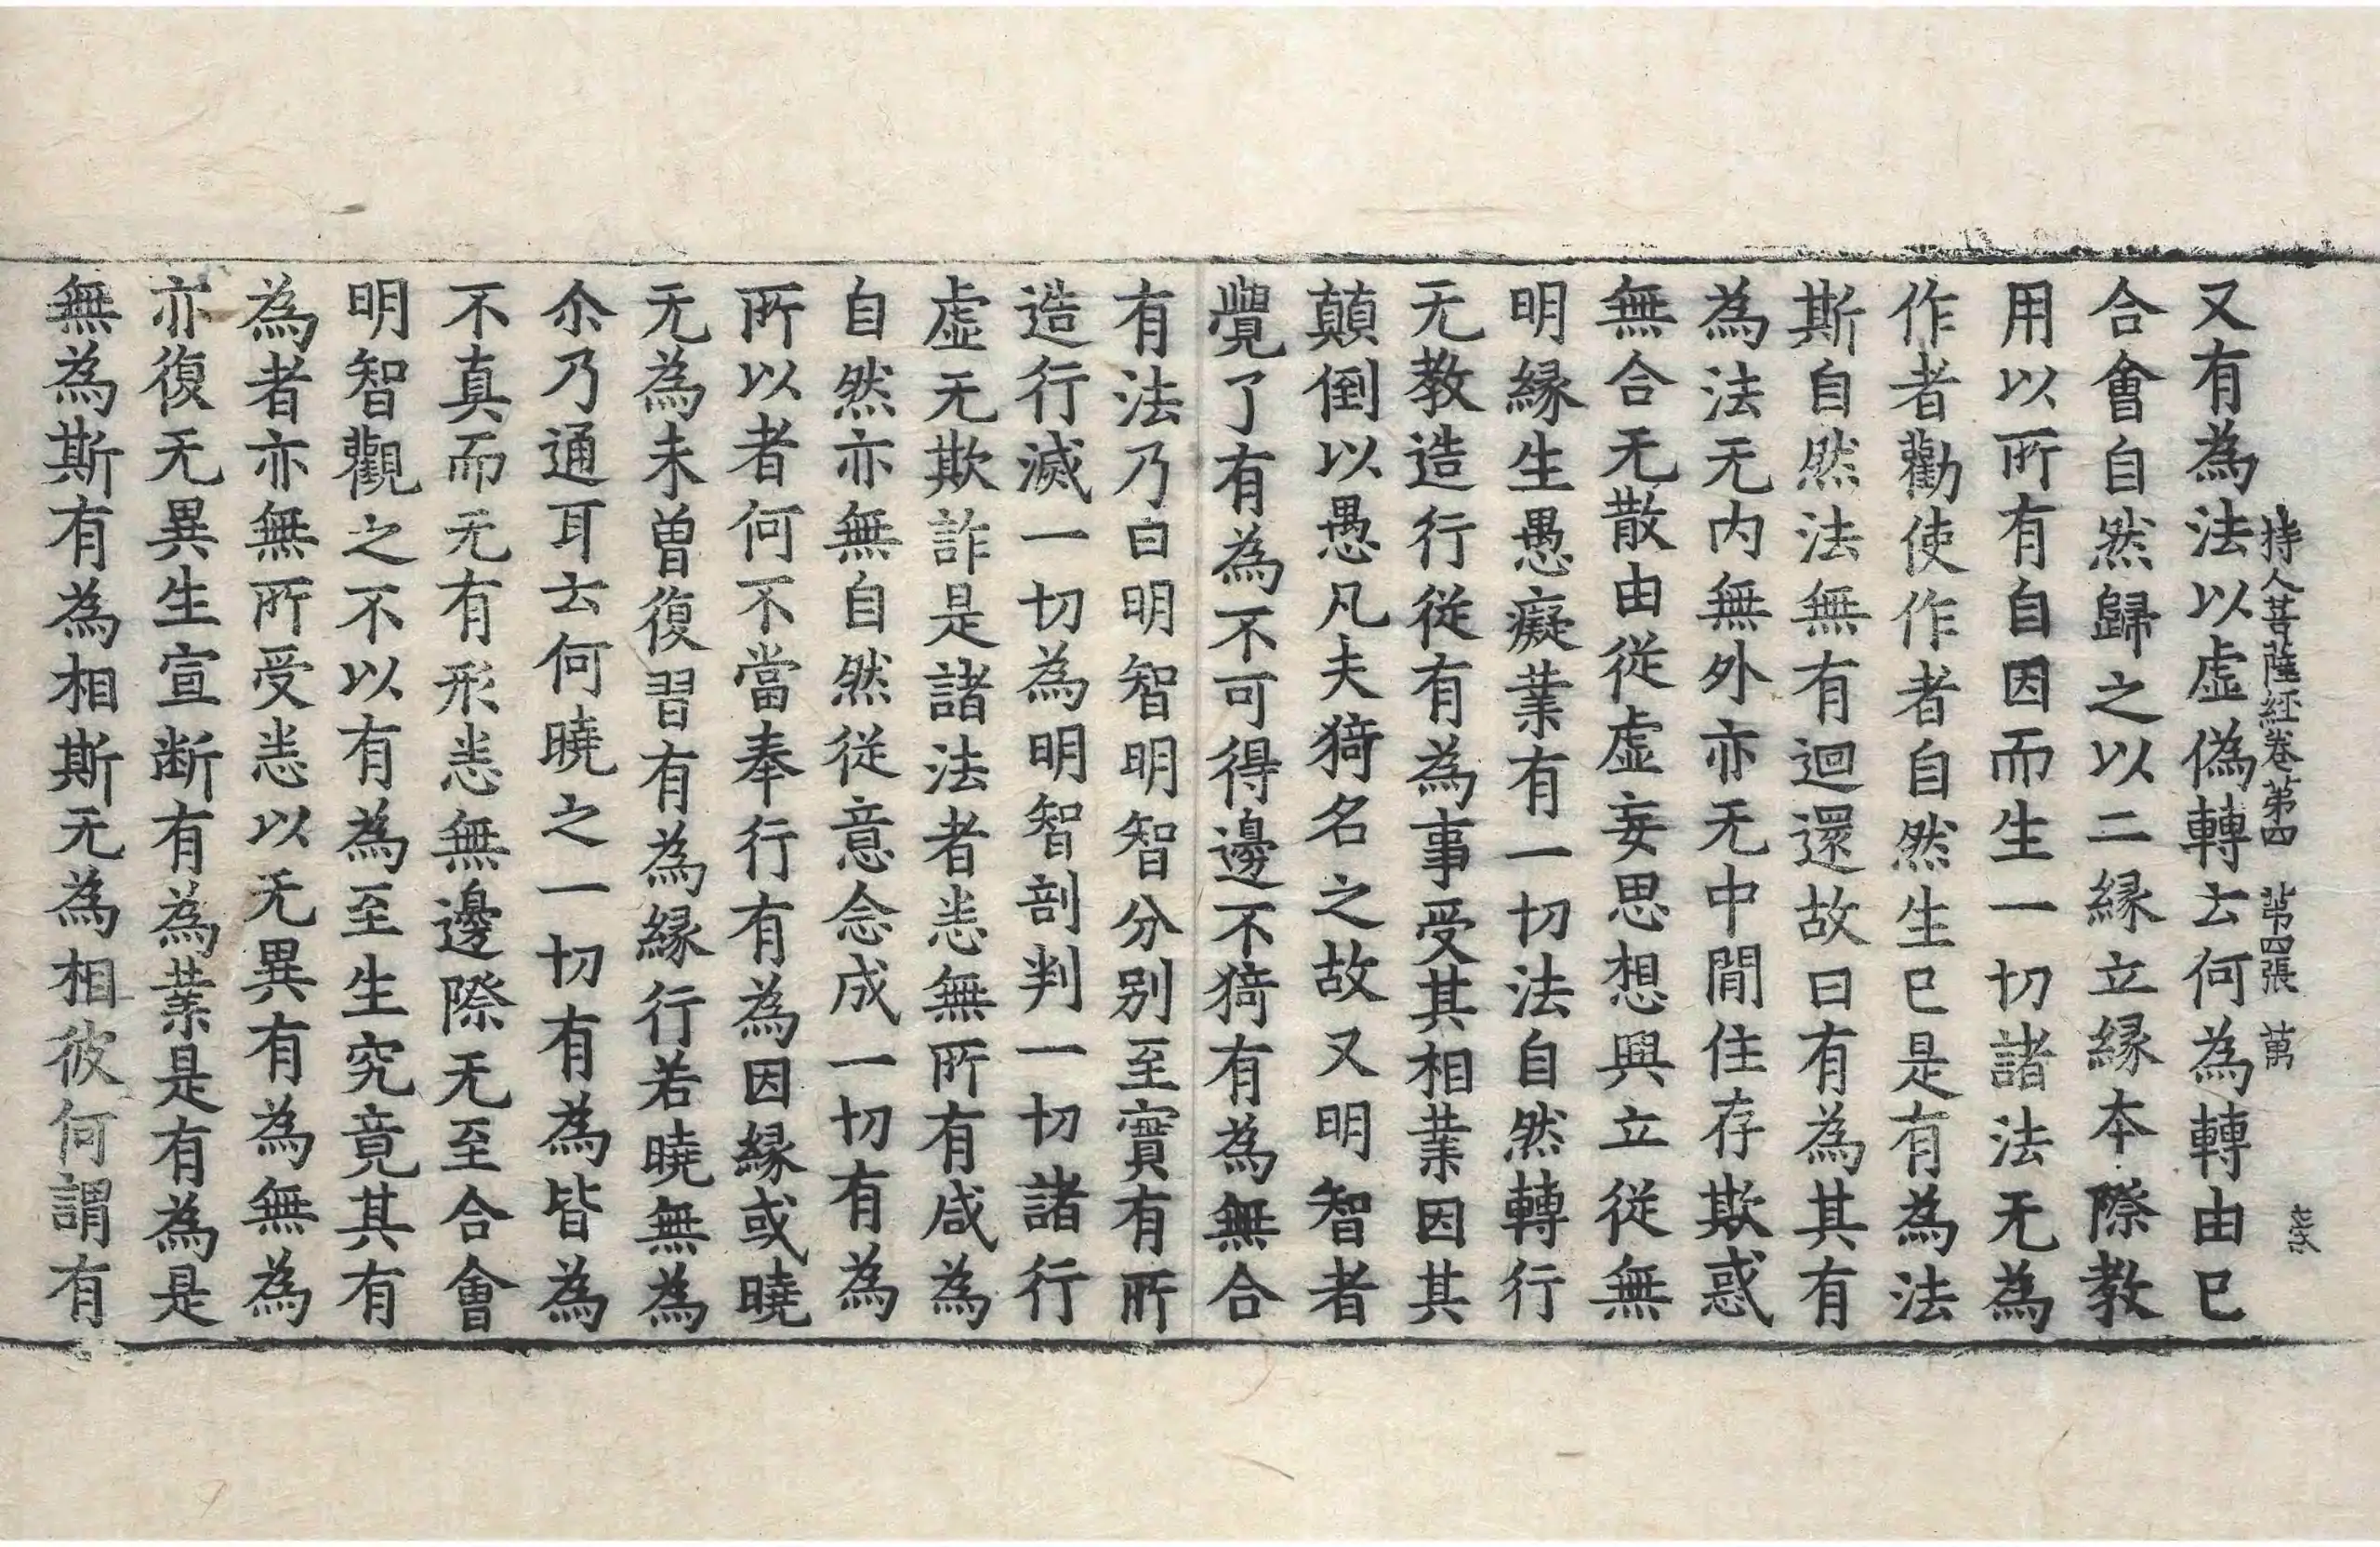 持人菩薩經卷第四　第四張　萬
又有為法以虛偽轉云何為轉由已
合會自然歸之以二緣立緣本際教
用以所有自因而生一切諸法无為
作者勸使作者自然生已是有為法
斯自然法無有迴還故曰有為其有
為法无内無外亦无中間住存欺惑
無合无散由從虛妄思想興立從無
明緣生愚癡業有一切法自然轉行
无教造行從有為事受其相業因其
顛倒以愚凡夫猗名之故又明智者
覺了有為不可得邊不猗有為無合
有法乃曰明智明智分別至實有所
造行滅一切為明智剖判一切諸行
虛无欺詐是諸法者恙無所有咸為
自然亦無自然從意念成一切有為
所以者何不當奉行有為因緣或曉
无為未曾復習有為緣行若曉無為
尒乃通耳云何曉之一切有為皆為
不真而无有形恙無邊際无至合會
明智觀之不以有為至生究竟其有
為者亦無所受恙以无異有為無為
亦復无異生宣断有為業是有為是
無為斯有為相斯无為相彼何謂有